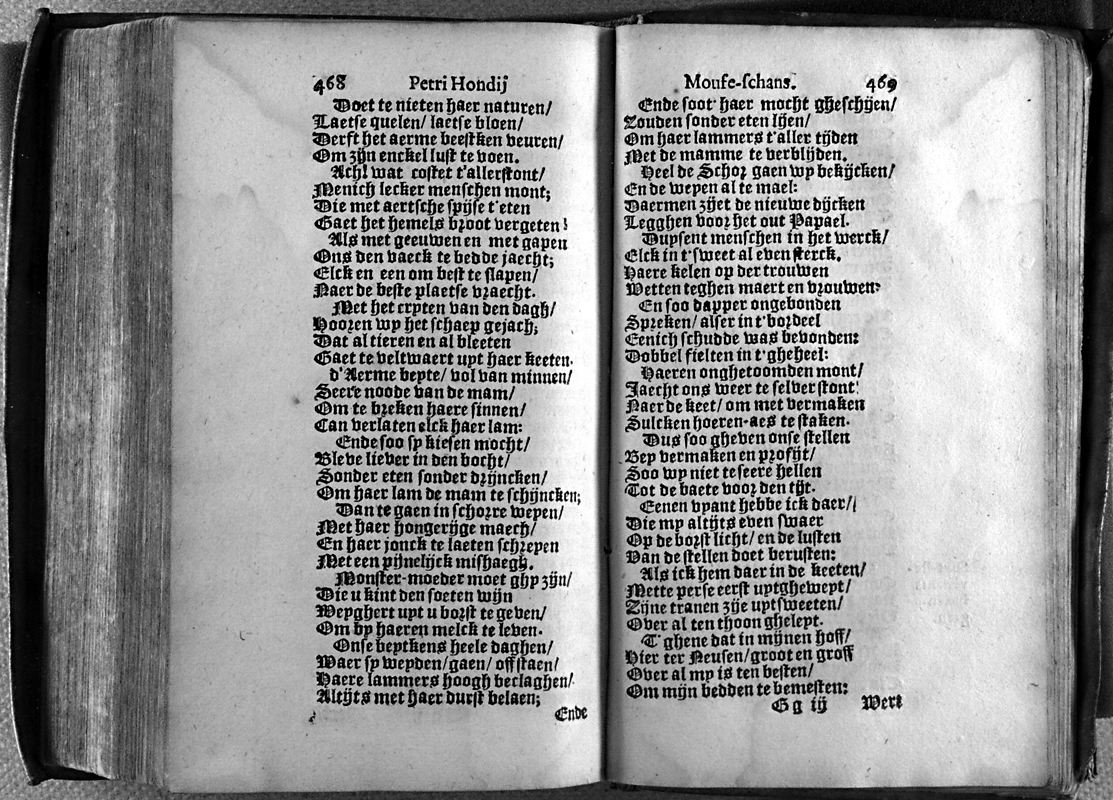 468 Petri Hondij
Doet te nieten haer naturen/
Laetse quelen/ laetse bloen/
Derft het aerme beestken veuren/
Om zijn enckel lust te voen.
Ach! wat costet t'allerstont/
Menich lecker menschen mont;
Die met aertsche spijse t'eten
Gaet het hemels broot vergeten!
Als met geeuwen en met gapen
Ons den vaeck te bedde jaecht;
Elck en een om best te slapen/
Naer de beste plaetse vraecht.
Met het crypten van den dagh/
Hooren wy het schaep gejach;
Dat al tieren en al bleeten
Gaet te veltwaert uyt haer keeten.
d'Aerme beyte/ vol van minnen/
Seere noode van de mam/
Om te breken haere sinnen/
Can verlaten elck haer lam:
Ende soo sy kiesen mocht/
Bleve liever in den bocht/
Sonder eten sonder drijncken/
Om haer lam de mam te schijncken;
Dan te gaen in schorre weyen/
Met haer hongerijge maech/
En haer jonck te laeten schreyen
Met een pijnelijck mishaegh.
Monster-moeder moet ghy zijn/
Die u kint den soeten wijn
Weyghert uyt u borst te geven/
Om by haeren melck te leven.
Onse beytkens heele daghen/
Waer sy weyden/ gaen/ off staen/
Haere lammers hoogh beclaghen/
Altijts met haer durst belaen;
Ende
Mouse-schans. 469
Ende soot' haer mocht gheschijen/
Zouden sonder eten lijen/
Om haer lammers t'aller tijden
Met de mamme te verblijden.
Heel de Schor gaen wy bekijcken/
En de weyen al te mael:
Daermen zijet de nieuwe dijcken
Legghen voor het out Papael.
Duysent menschen in het werck/
Elck in t'sweet al even sterck.
Haere kelen op der trouwen
Wetten teghen maert en vrouwen:
En soo dapper ongebonden
Spreken/ alser in t'bordeel
Eenich schudde was bevonden:
Dobbel fielten in t'gheheel:
Haeren onghetoomden mont/
Jaecht ons weer te selver stont!
Naer de keet/ om met vermaken
Sulcken hoeren-aes te staken.
Dus soo gheven onse stellen
Bey vermaken en profijt/
Soo wy niet te seere hellen
Tot de baete voor den tijt.
Eenen vyant hebbe ick daer/
Die my altijts even swaer
Op de borst licht/ en de lusten
Van de stellen doet berusten:
Als ick hem daer in de keeten/
Mette perse eerst uytgheweyt/
Zijne tranen zije uytsweeten/
Over al ten thoon gheleyt.
T'ghene dat in mijnen hoff/
Hier ter Neusen/ groot en groff
Over al my is ten besten/
Om mijn bedden te bemesten:
G g ij Wert